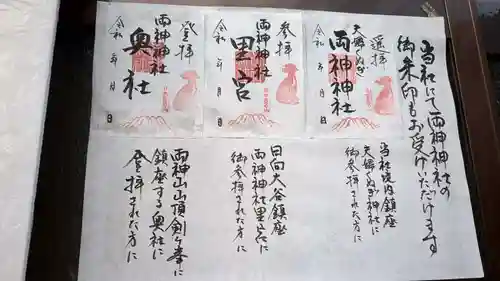 当社にて両神神社の
御朱印もお受けいただけます
遥拝
夫婦くぬぎ
両神神社
令和 年 月 日
当社境内鎮座
夫婦くぬぎ神社に
御参拝された方に
参拝
両神神社
里宮
令和 年 月 日
日向大谷鎮座
両神神社里宮に
御参拝された方に
登拝
両神神社
奥社
令和 年 月 日
両神山山頂剣ヶ峯に
鎮座する奥社に
登拝された方に